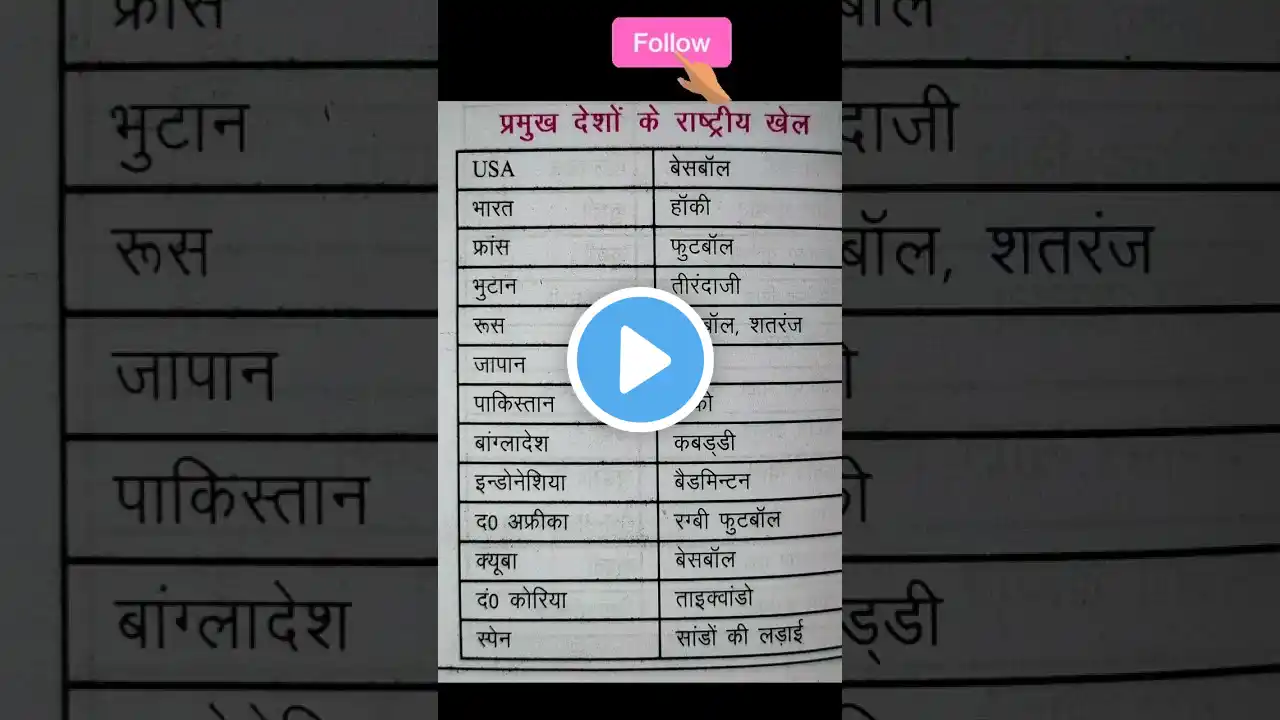 Follow
प्रमुख देशों के राष्ट्रीय खेल
USA बेसबॉल
भारत हॉकी
फ्रांस फुटबॉल
भुटान तीरंदाजी
रूस बॉल, शतरंज
जापान
पाकिस्तान
बांग्लादेश कबड्डी
इन्डोनेशिया बैडमिन्टन
द0 अफ्रीका रग्बी फुटबॉल
क्यूबां बेसबॉल
दं0 कोरिया ताइक्वांडो
स्पेन सांडों की लड़ाई